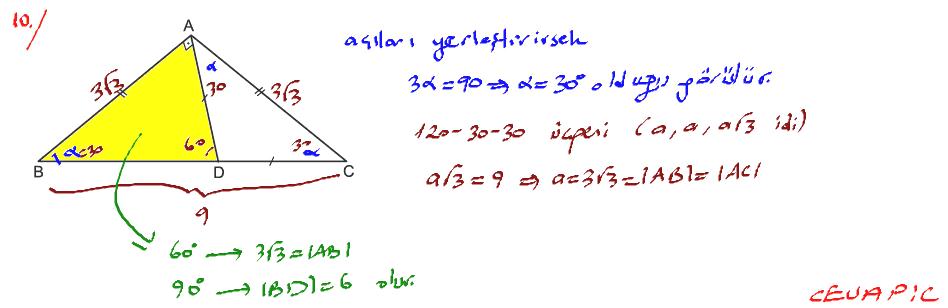 10.
A
α
30
3√3
3√3
α=30
60
30
α
B
D
C
9
açıları yerleştirirsek
3α=90 ⇒ α=30° olduğu görülür.
120-30-30 üçgeni (a, a, a√3 idi)
a√3 = 9 ⇒ a=3√3=|AB|=|AC|
60° → 3√3=|AB|
90° → |BD|=6 olur.
CEVAP: C